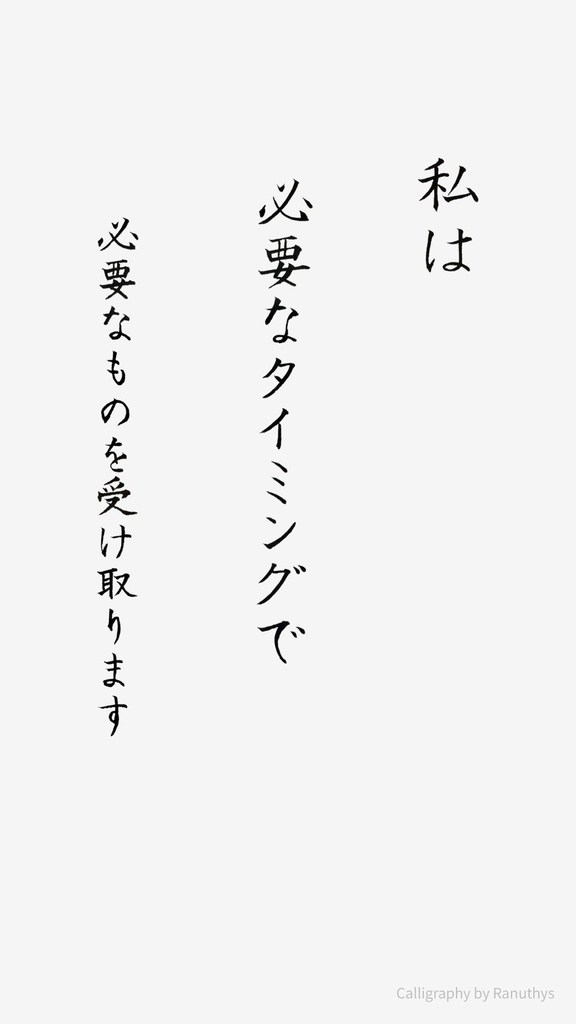 私は
必要なタイミングで
必要なものを受け取ります
Calligraphy by Ranuthys